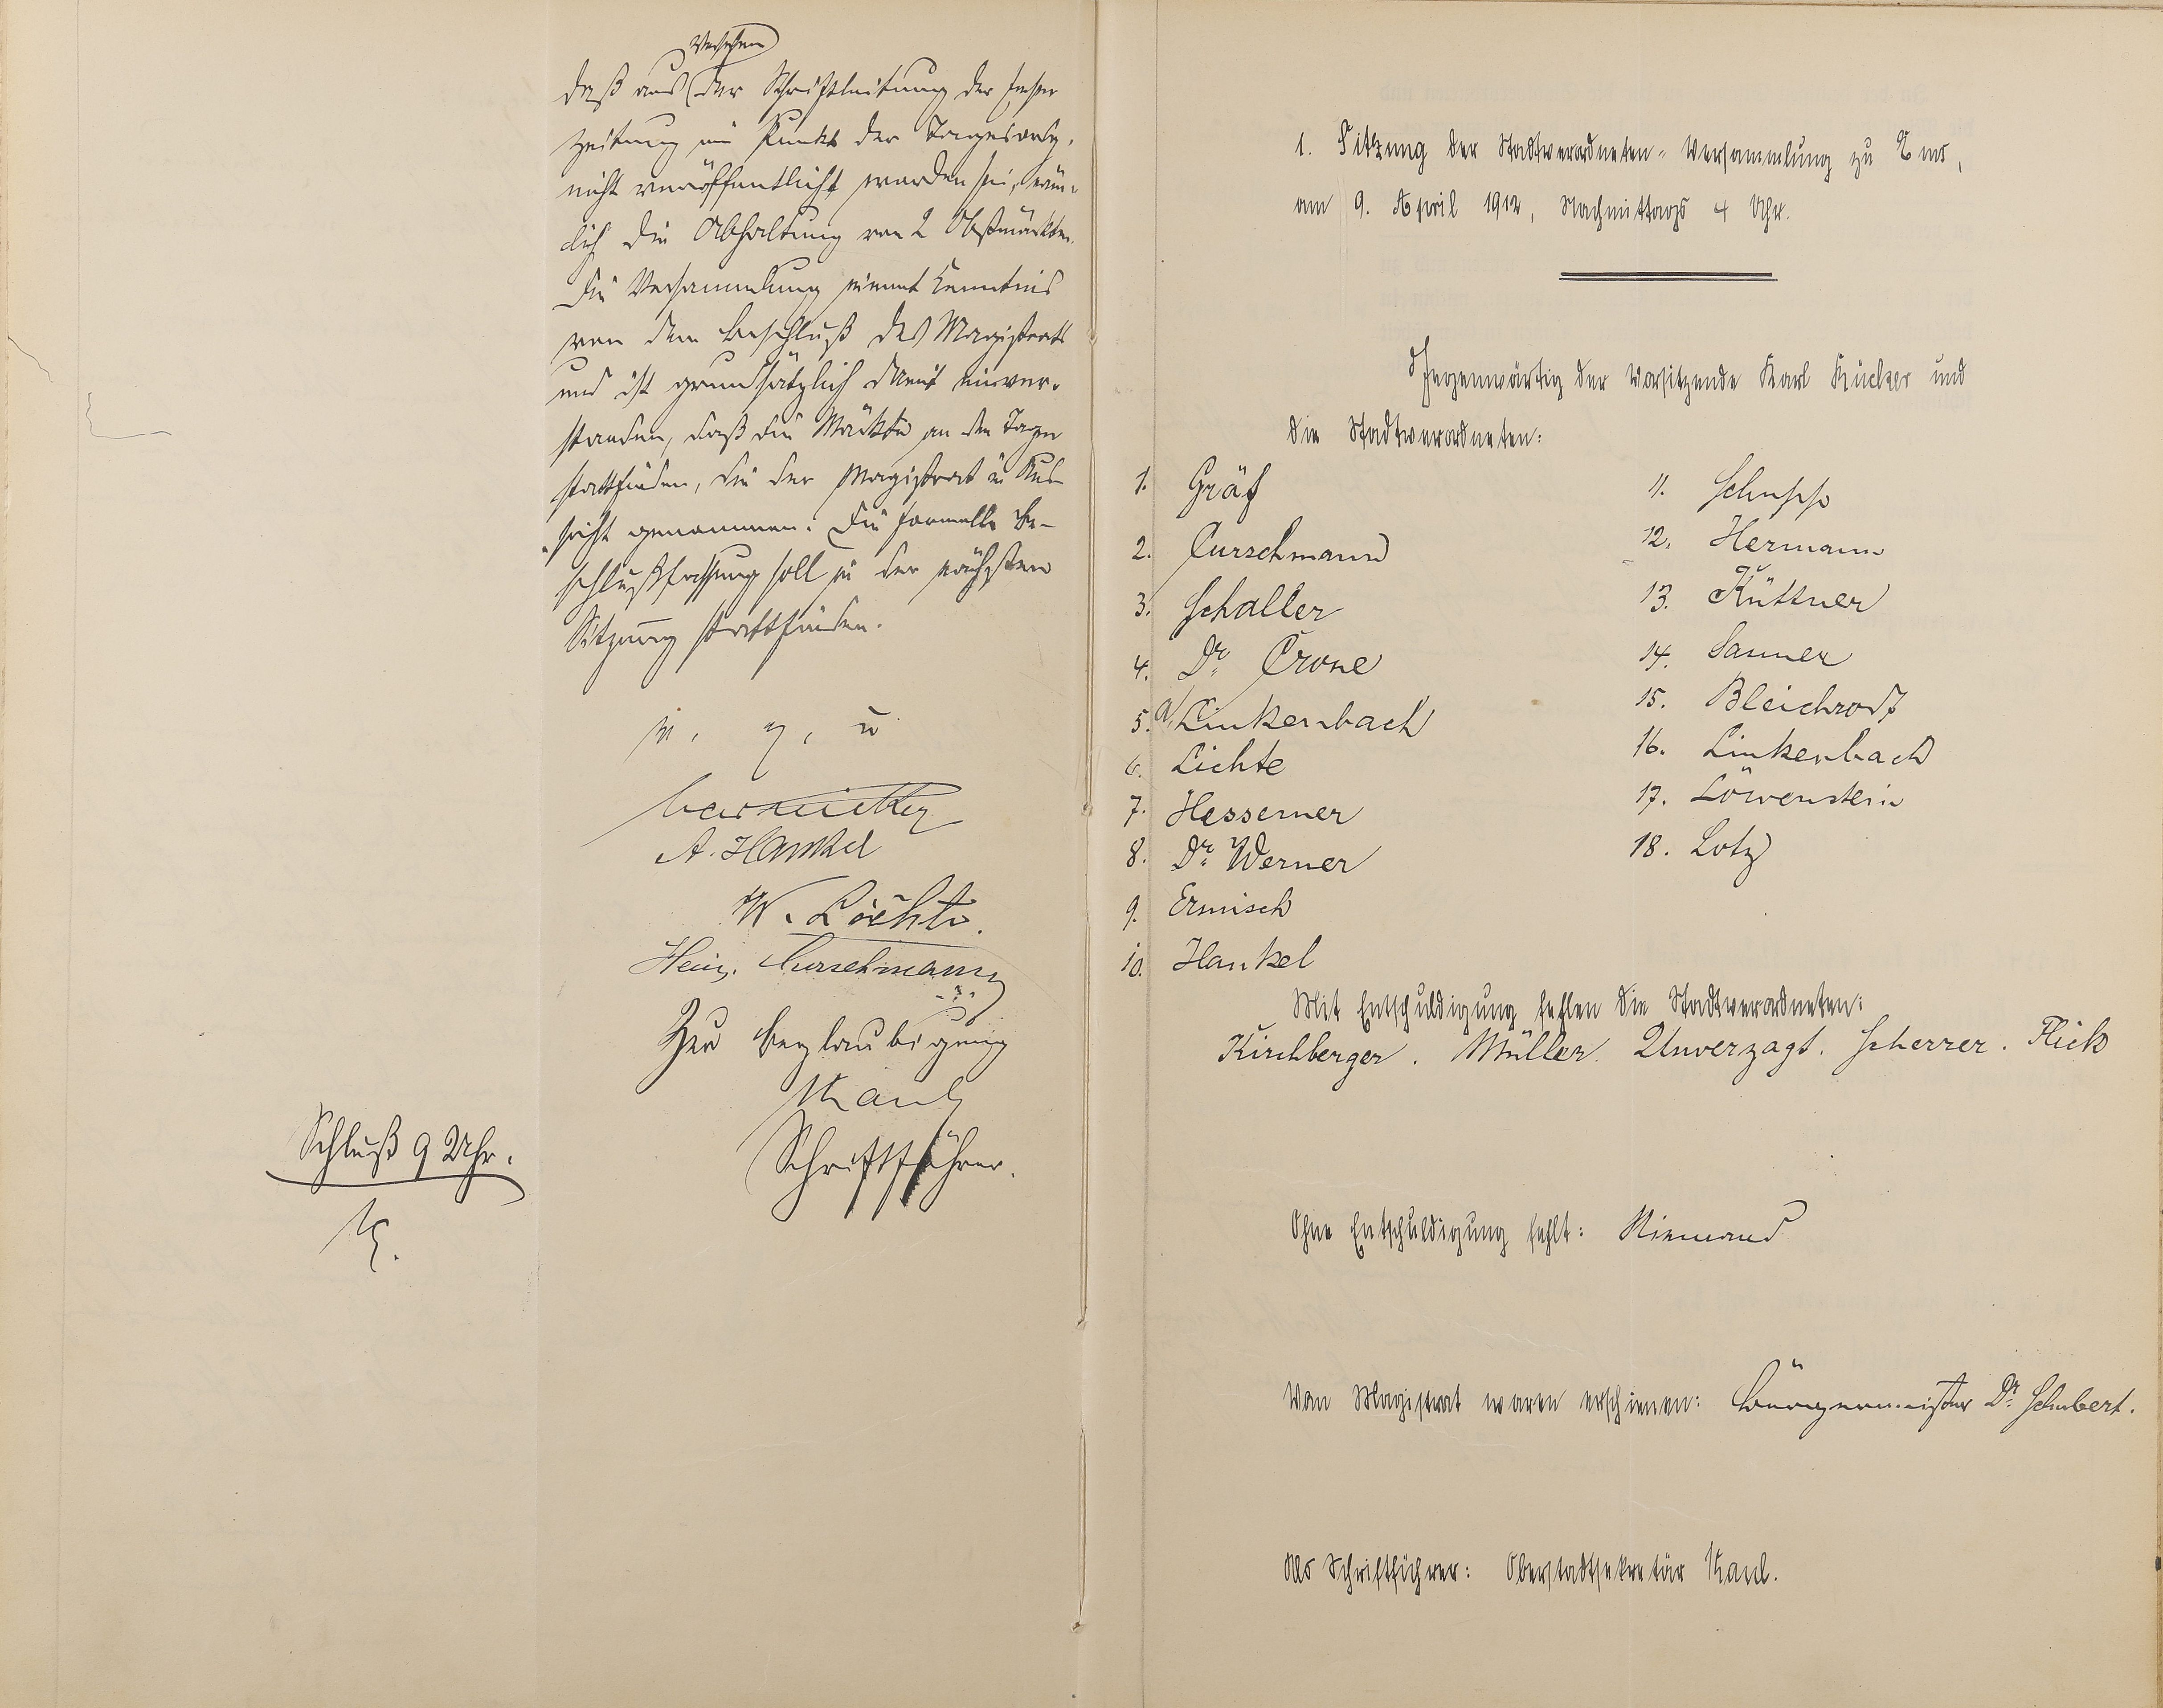 Versehen
daß aus der Schriftleitung der Emser
Zeitung ein Punkt der Tagesordg.
nicht veröffentlicht worden sei, näm-
lich die Abhaltung von 2 Obstmärkten.
Die Versammlung nimmt Kenntnis
von dem Beschluß des Magistrats
und ist grundsätzlich damit einver-
standen, daß die Märkte an den Tagen
stattfinden, die der Magistrat in Aus-
sicht genommen. Die formelle Be-
schlußfassung soll in der nächsten
Sitzung stattfinden.
v. g. u.
A. Hankel
W. Löchte.
Hein. Curschmann
Zur Beglaubigung
Kaul
Schriftführer.
Schluß 9 Uhr.
K.
1. Sitzung der Stadtverordneten-Versammlung zu Ems,
am 9. April 1912, Nachmittags 4 Uhr.
Gegenwärtig der Vorsitzende Karl Rücker und
die Stadtverordneten:
1. Gräf
2. Curschmann
3. Schaller
4. Dr. Crone
5. a/ Linkenbach
6. Lichte
7. Hessemer
8. Dr. Werner
9. Ermisch
10. Hankel
11. Schupp
12. Hermann
13. Küttner
14. Sanner
15. Bleichrodt
16. Linkenbach
17. Löwenstein
18. Lotz
Mit Entschuldigung fehlen die Stadtverordneten:
Kirchberger. Müller. Unverzagt. Scherrer. Flick
Ohne Entschuldigung fehlt: Niemand
Von Magistrat waren erschienen: Bürgermeister Dr. Schubert.
Als Schriftführer: Oberstadtsekretär Kaul.